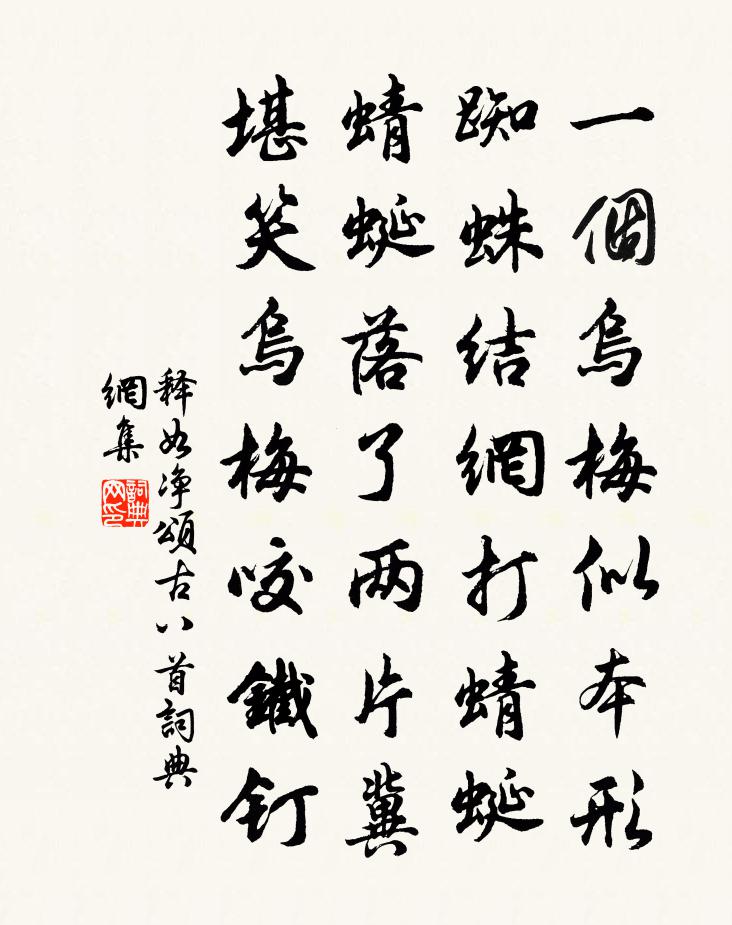 一個烏梅似本形
踟蛛結網打蜻蜓
蜻蜓落了两片冀
堪笑烏梅咬鐵釘
释如净頌古八首詞典
網集
詞典
网印